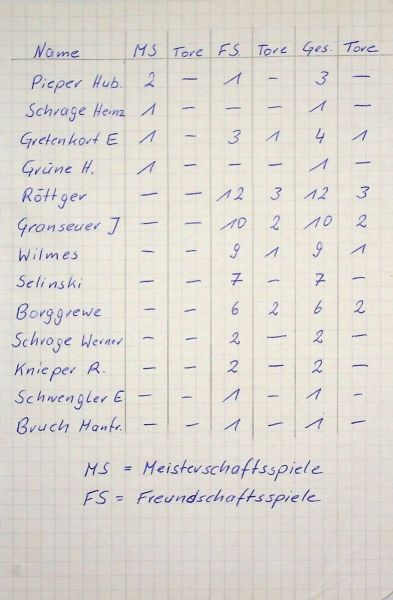 Name MS Tore FS. Tore Ges. Tore
Pieper Hub. 2 — 1 - 3 —
Schrage Heinz 1 — — — 1 —
Gretenkort E 1 - 3 1 4 1
Grüne H. 1 — — — 1 —
Röttger — — 12 3 12 3
Granseuer J — — 10 2 10 2
Wilmes — — 9 1 9 1
Selinski — — 7 — 7 —
Borggrewe — — 6 2 6 2
Schrage Werner — — 2 — 2 —
Knieper R. — — 2 — 2 —
Schwengler E — - 1 — 1 -
Bruch Manfr. — — 1 — 1 —
MS = Meisterschaftsspiele
FS = Freundschaftsspiele